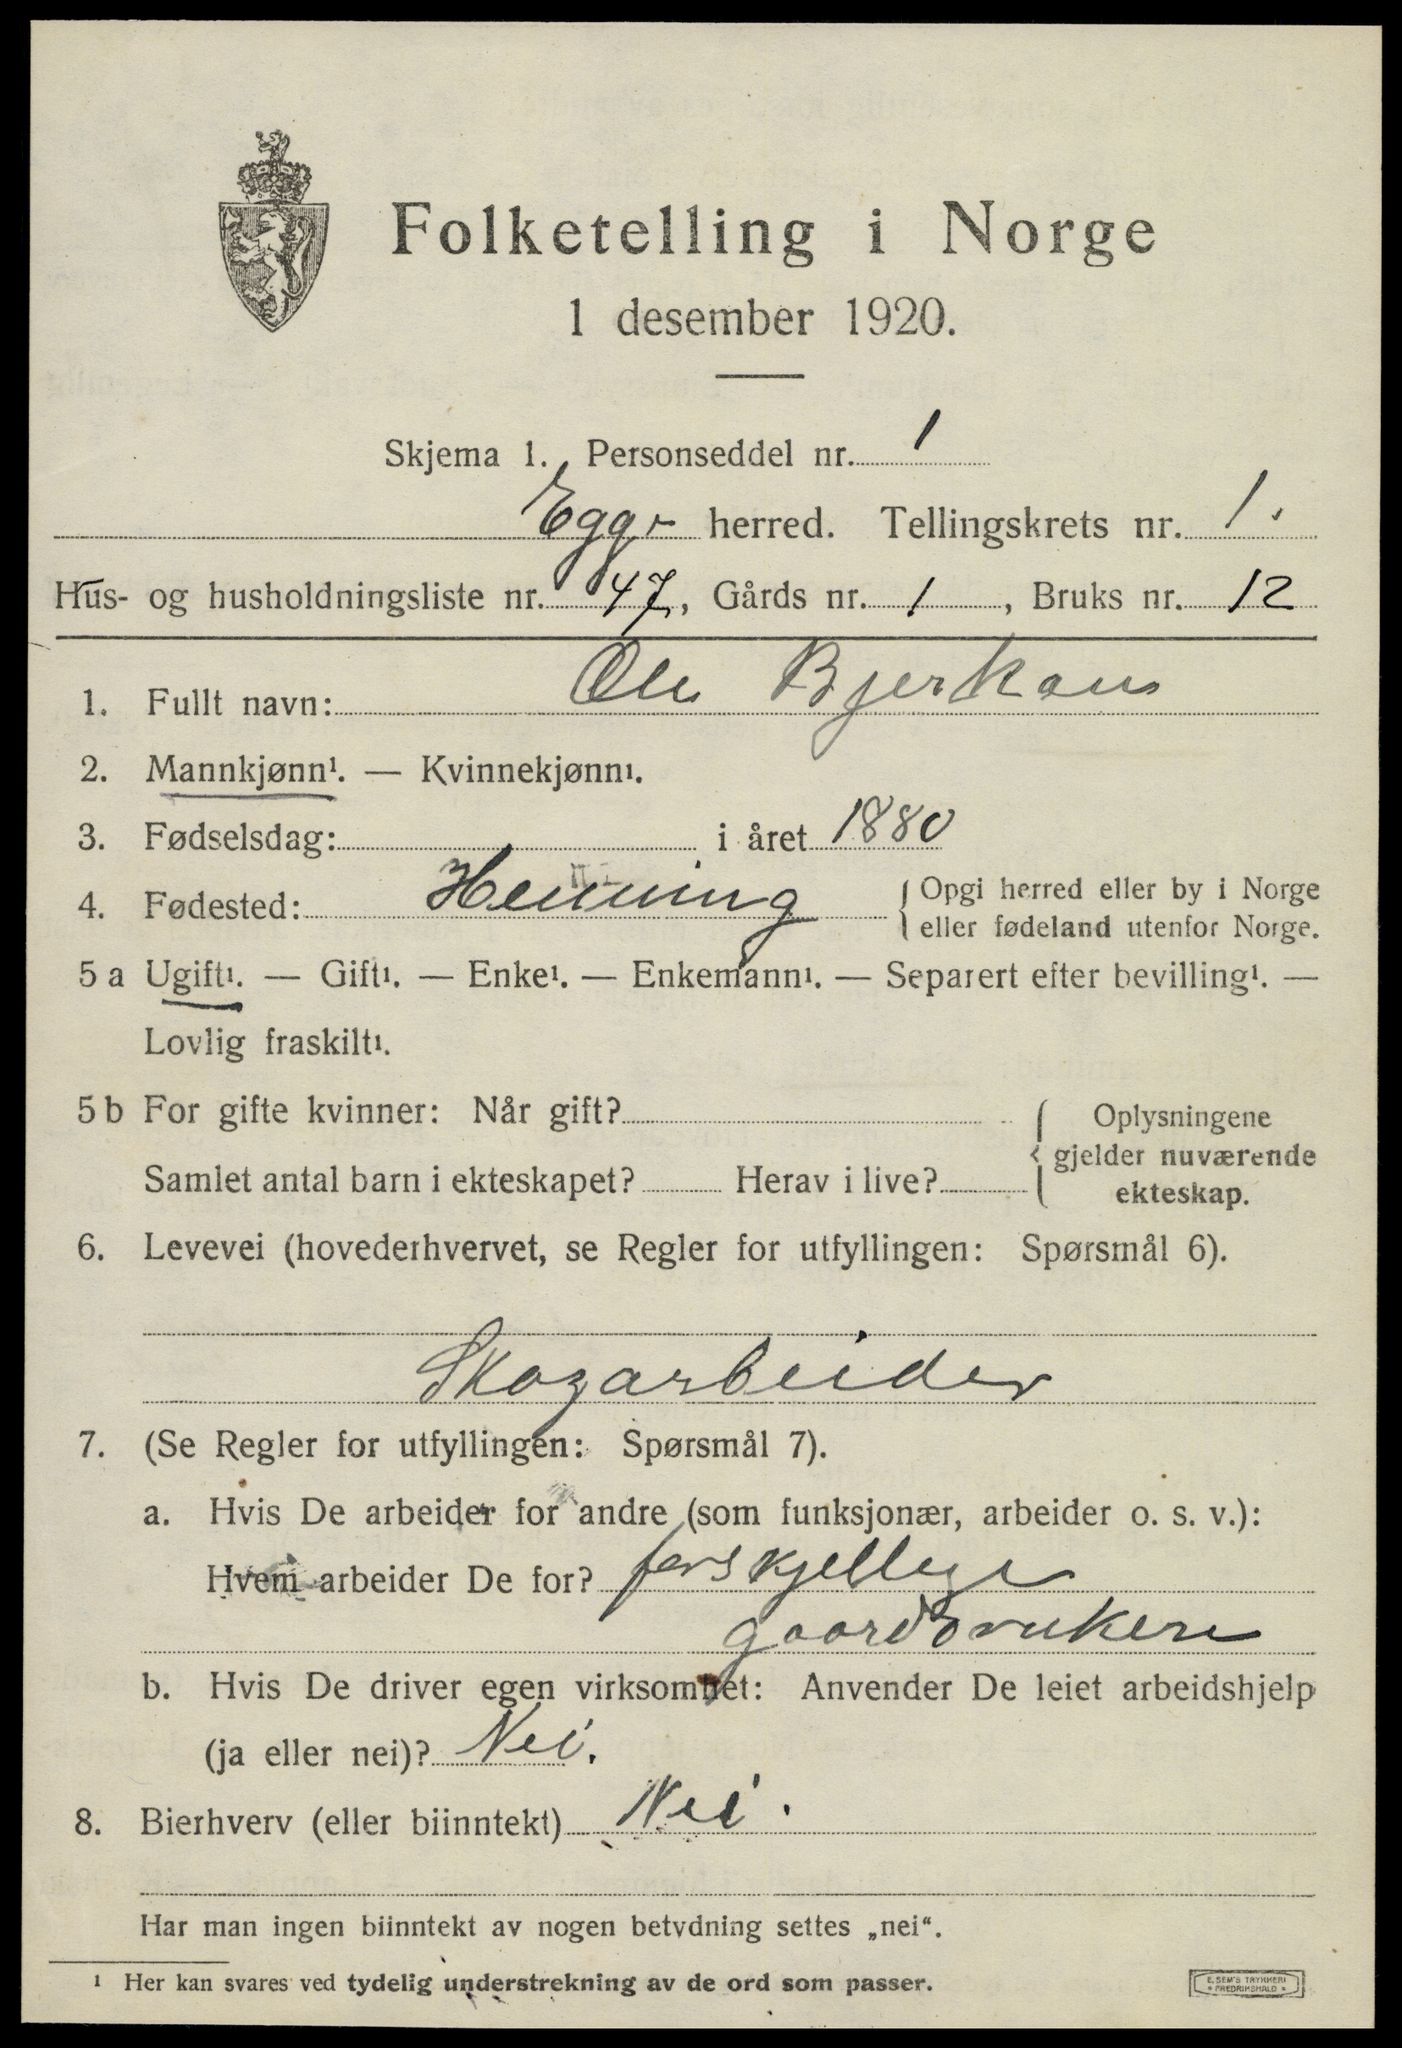 Folketelling i Norge
1 desember 1920.
Skjema 1. Personseddel nr. 1
Egge herred. Tellingskrets nr. 1.
Hus- og husholdningsliste nr. 47, Gårds nr. 1, Bruks nr. 12
1. Fullt navn: Ole Bjerkaus
2. Mannkjønn¹. — Kvinnekjønn¹.
3. Fødselsdag: i året 1880
4. Fødested: Henning { Opgi herred eller by i Norge
eller fødeland utenfor Norge.
5 a Ugift¹. — Gift¹. — Enke¹. — Enkemann¹. — Separert efter bevilling¹. —
Lovlig fraskilt¹.
5 b For gifte kvinner: Når gift? { Oplysningene
gjelder nuværende
Samlet antal barn i ekteskapet? Herav i live? ekteskap.
6. Levevei (hovederhvervet, se Regler for utfyllingen: Spørsmål 6).
Skogarbeider
7. (Se Regler for utfyllingen: Spørsmål 7).
a. Hvis De arbeider for andre (som funksjonær, arbeider o. s. v.):
Hvem arbeider De for? forskjellege
gaardbrukere
b. Hvis De driver egen virksomhet: Anvender De leiet arbeidshjelp
(ja eller nei)? Nei.
8. Bierhverv (eller biinntekt) Nei.
Har man ingen biinntekt av nogen betydning settes „nei“.
¹ Her kan svares ved tydelig understrekning av de ord som passer.
E. SEM'S TRYKKERI
* FREDRIKSHALD *